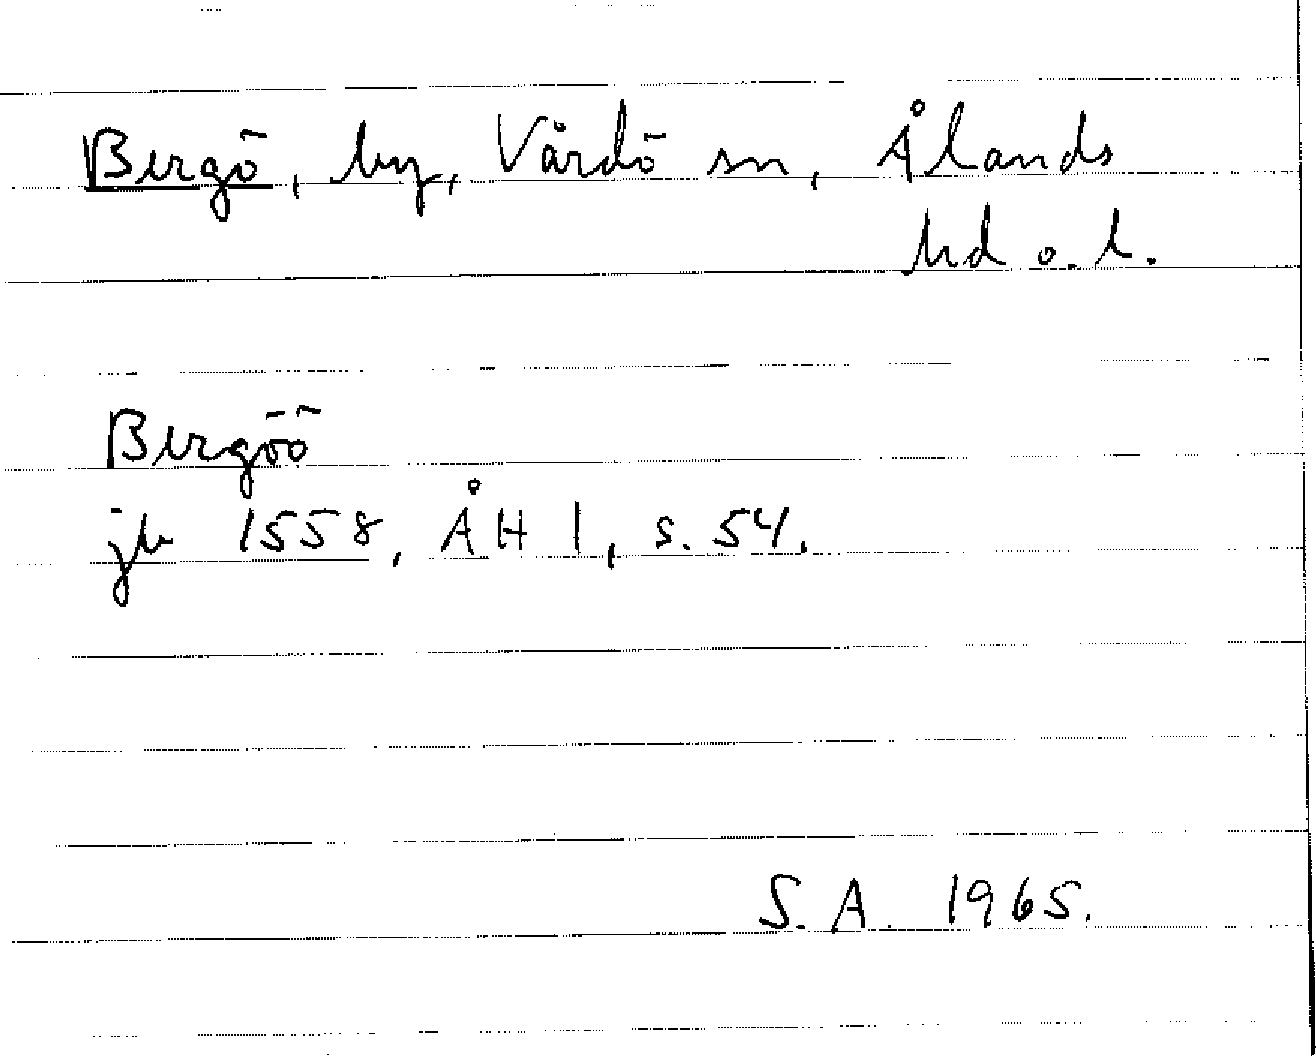 Bergö, by, Vårdö sn, Ålands
hd o. l.
Bergöö
jb 1558, ÅH 1, s. 54.
S. A. 1965.